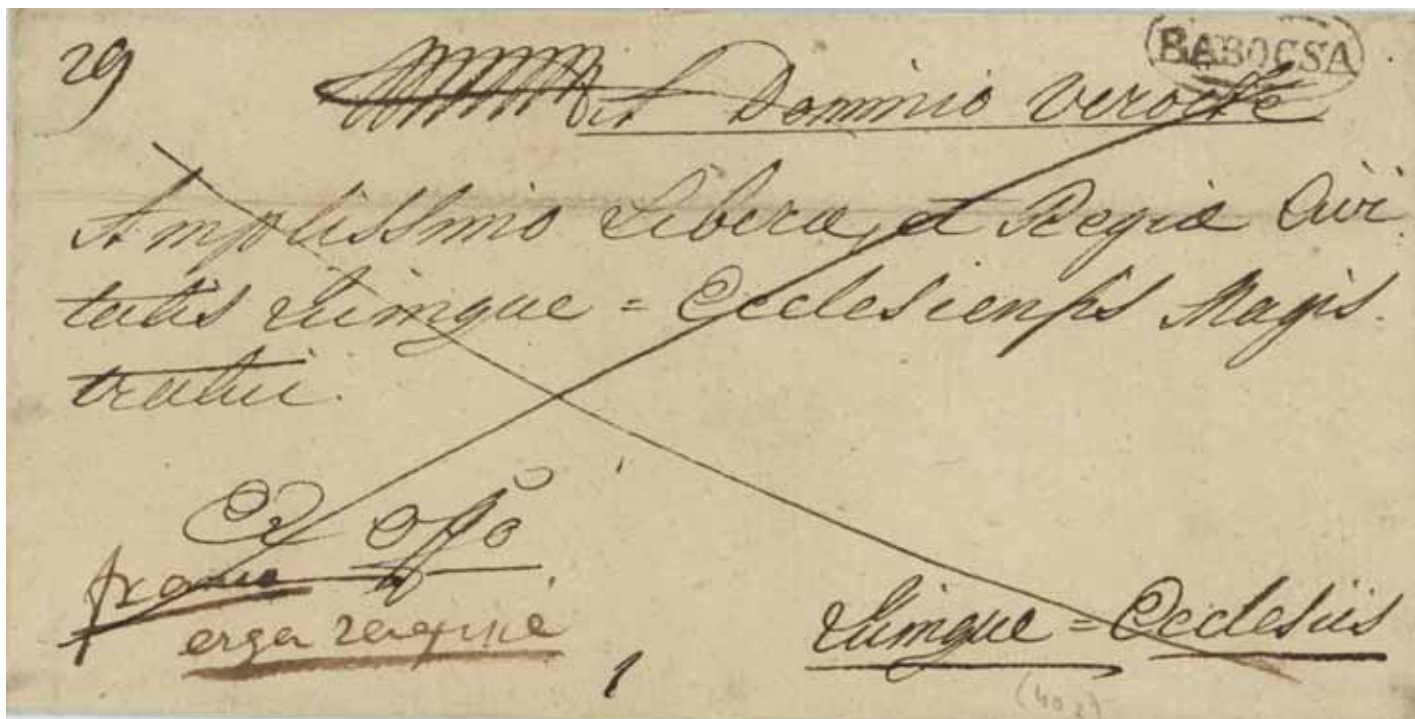 29
BABOCSA
A Dominio Verocze
Amplissimo Liberae, et Regiae Civi
tatis Quinque = Ecclesiensis Magis.
tratui.
Ex offo
franco
erga recepisse
1
Quinque = Ecclesiis